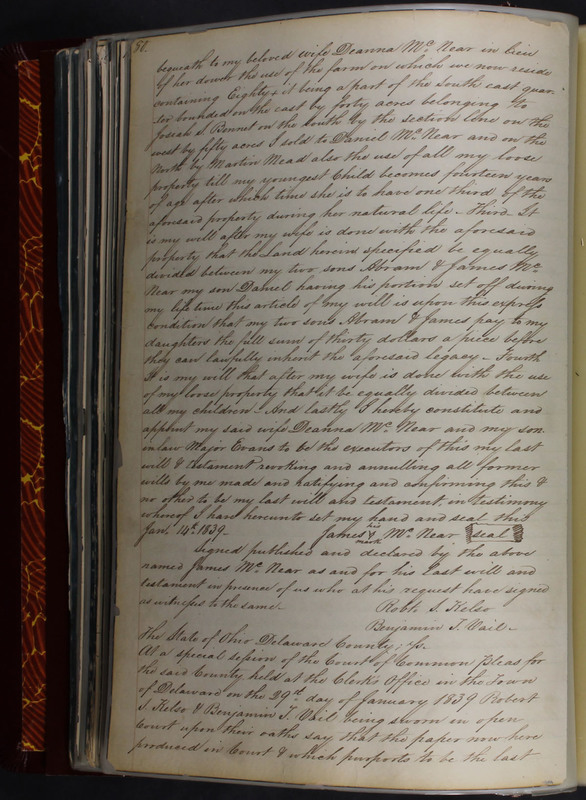 50.
bequeath to my beloved wife Deanna Mc. Near in lieu
of her dower the use of the farm on which we now reside
containing Eighty & it being a part of the South east quar-
ter bounded on the east by forty acres belonging to
Josiah S. Bennet on the South by the section line on the
west by fifty acres I sold to Daniel Mc. Near and on the
North by Martin Mead also the use of all my loose
property till my youngest Child becomes fourteen years
of age after which time she is to have one third of the
aforesaid property during her natural life - Third - It
is my will after my wife is done with the aforesaid
property that the Land herein specified be equally
divided between my two sons Abram & James Mc.
Near my son Daniel having his portion set off during
my life time this article of my will is upon this express
condition that my two sons Abram & James pay to my
daughters the full sum of thirty dollars a piece before
they can lawfully inherit the aforesaid legacy - Fourth
It is my will that after my wife is done with the use
of my loose property that it be equally divided between
all my children - And lastly I hereby constitute and
appoint my said wife Deanna Mc. Near and my son-
in law Major Evans to be the executors of this my last
will & testament revoking and annulling all former
wills by me made and ratifying and confirming this &
no other to be my last will and testament, in testimony
whereof I have hereunto set my hand and seal this
Jan. 14th. 1839 - James his X mark Mc. Near seal
Signed published and declared by the above
named James Mc. Near as and for his last will and
testament in presence of us who at his request have signed
as witness to the same - Robt. S. Kelso
Benjamin T. Vail -
The State of Ohio Delaware County, Ss.
At a special session of the Court of Common Pleas for
the said County held at the Clerks Office in the Town
of Delaware on the 29th. day of January 1839 Robert
S. Kelso & Benjamin T. Vail being sworn in open
Court upon their oaths say that the paper now here
produced in Court & which purports to be the last